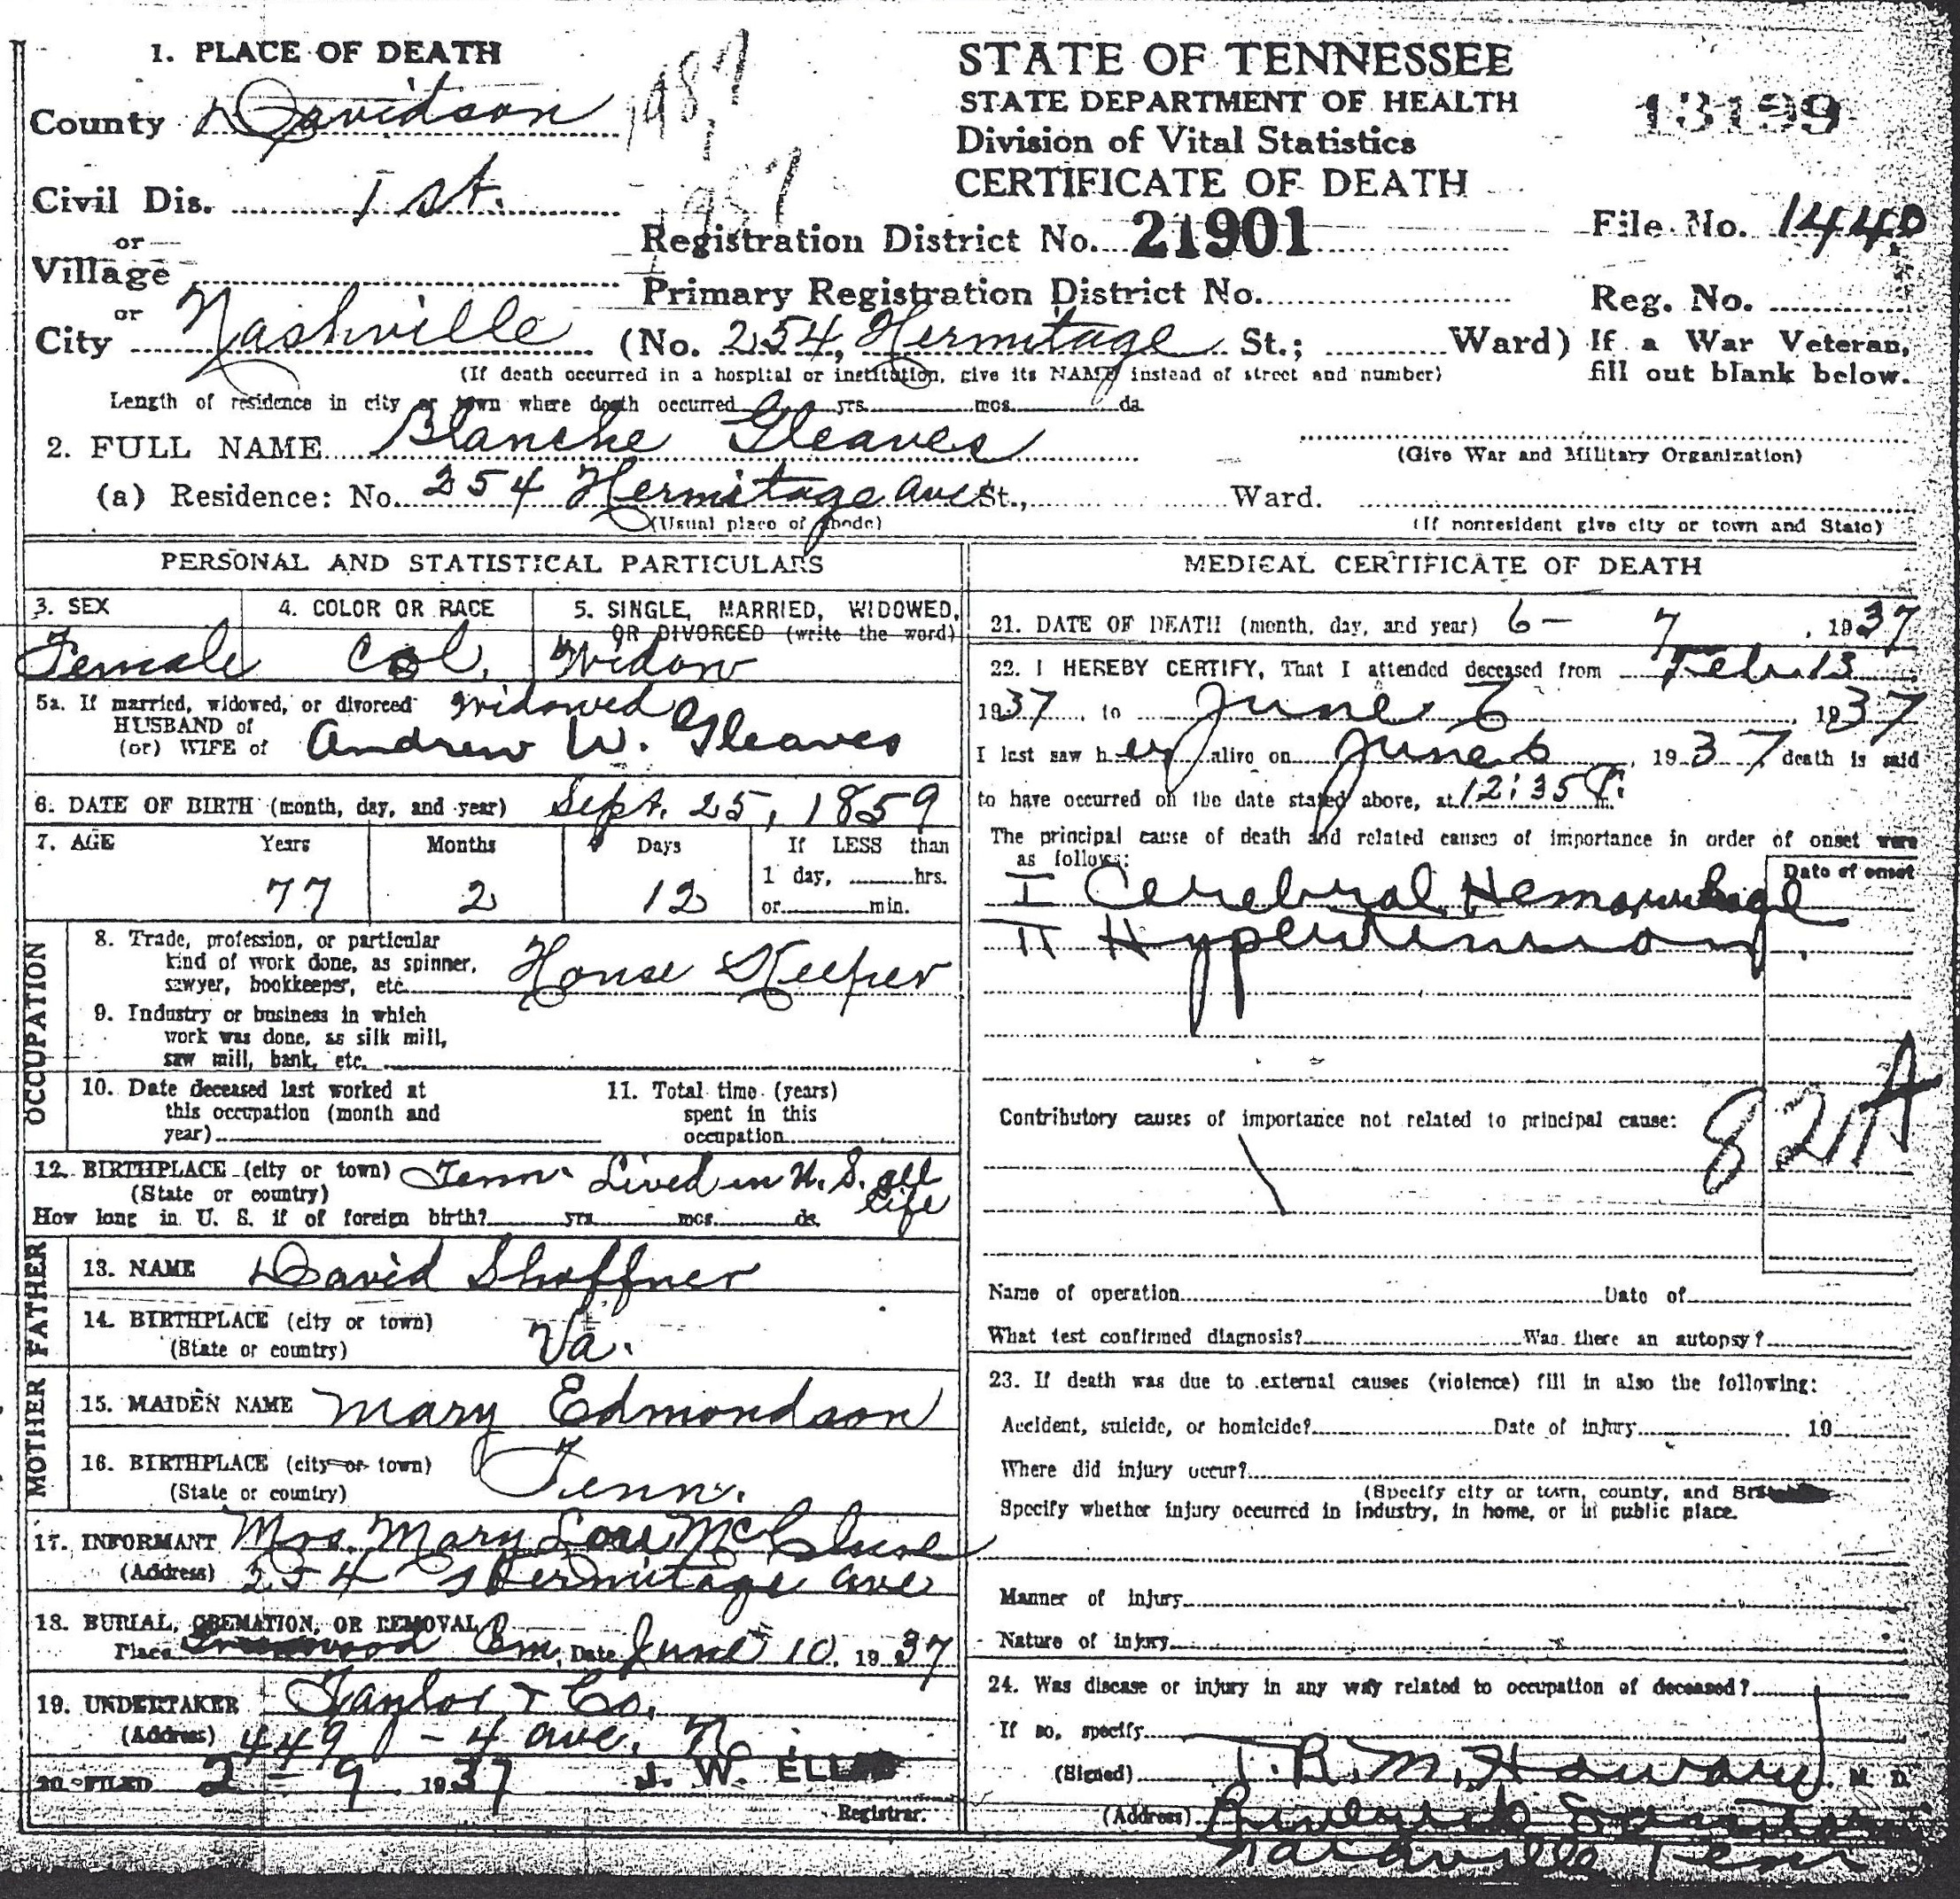 1. PLACE OF DEATH
County Davidson
Civil Dis. 1 st.
or
Village
or
City Nashville (No. 254, Hermitage St.; Ward)
(If death occurred in a hospital or institution, give its NAME instead of street and number)
Length of residence in city or town where death occurred yrs. mos. da.
STATE OF TENNESSEE
STATE DEPARTMENT OF HEALTH
Division of Vital Statistics
CERTIFICATE OF DEATH
Registration District No. 21901
Primary Registration District No.
13199
File No. 1440
Reg. No.
If a War Veteran,
fill out blank below.
2. FULL NAME Blanche Gleaves
(Give War and Military Organization)
(a) Residence: No. 254 Hermitage Ave St., Ward.
(Usual place of abode)
(If nonresident give city or town and State)
PERSONAL AND STATISTICAL PARTICULARS
3. SEX
Female
4. COLOR OR RACE
Col.
5. SINGLE, MARRIED, WIDOWED,
OR DIVORCED (write the word)
Widow
5a. If married, widowed, or divorced Widowed
HUSBAND of
(or) WIFE of Andrew W. Gleaves
6. DATE OF BIRTH (month, day, and year) Sept. 25, 1859
7. AGE Years Months Days If LESS than
1 day, hrs.
77 2 12 or min.
OCCUPATION
8. Trade, profession, or particular
kind of work done, as spinner,
sawyer, bookkeeper, etc. House Keeper
9. Industry or business in which
work was done, as silk mill,
saw mill, bank, etc.
10. Date deceased last worked at
this occupation (month and
year)
11. Total time (years)
spent in this
occupation
12. BIRTHPLACE (city or town) Tenn. Lived in U. S. all
(State or country) life
How long in U. S. if of foreign birth? yrs. mos. ds.
FATHER
13. NAME David Shaffner
14. BIRTHPLACE (city or town)
(State or country) Va.
MOTHER
15. MAIDEN NAME Mary Edmondson
16. BIRTHPLACE (city or town)
(State or country) Tenn.
17. INFORMANT Mrs. Mary Lou McClure
(Address) 254 Hermitage Ave
18. BURIAL, CREMATION, OR REMOVAL
Place Greenwood Cem. Date June 10, 1937
19. UNDERTAKER Taylor & Co.
(Address) 449 - 4 Ave. N.
20. FILED 2 - 9 1937 J. W.
Registrar.
MEDICAL CERTIFICATE OF DEATH
21. DATE OF DEATH (month, day, and year) 6 - 7, 1937
22. I HEREBY CERTIFY, That I attended deceased from Feb. 13
1937, to June 6, 1937
I last saw her alive on June 6, 1937 death is said
to have occurred on the date stated above, at 12:35 P.
The principal cause of death and related causes of importance in order of onset were
as follows:
Date of onset
I Cerebral Hemorrhage
II Hypertension.
Contributory causes of importance not related to principal cause:
82A
Name of operation Date of
What test confirmed diagnosis? Was there an autopsy?
23. If death was due to external causes (violence) fill in also the following:
Accident, suicide, or homicide? Date of injury 19
Where did injury occur?
(Specify city or town, county, and State)
Specify whether injury occurred in industry, in home, or in public place.
Manner of injury
Nature of injury
24. Was disease or injury in any way related to occupation of deceased?
If so, specify
(Signed) T. R. M. Howard, M. D.
(Address)
Nashville Tenn